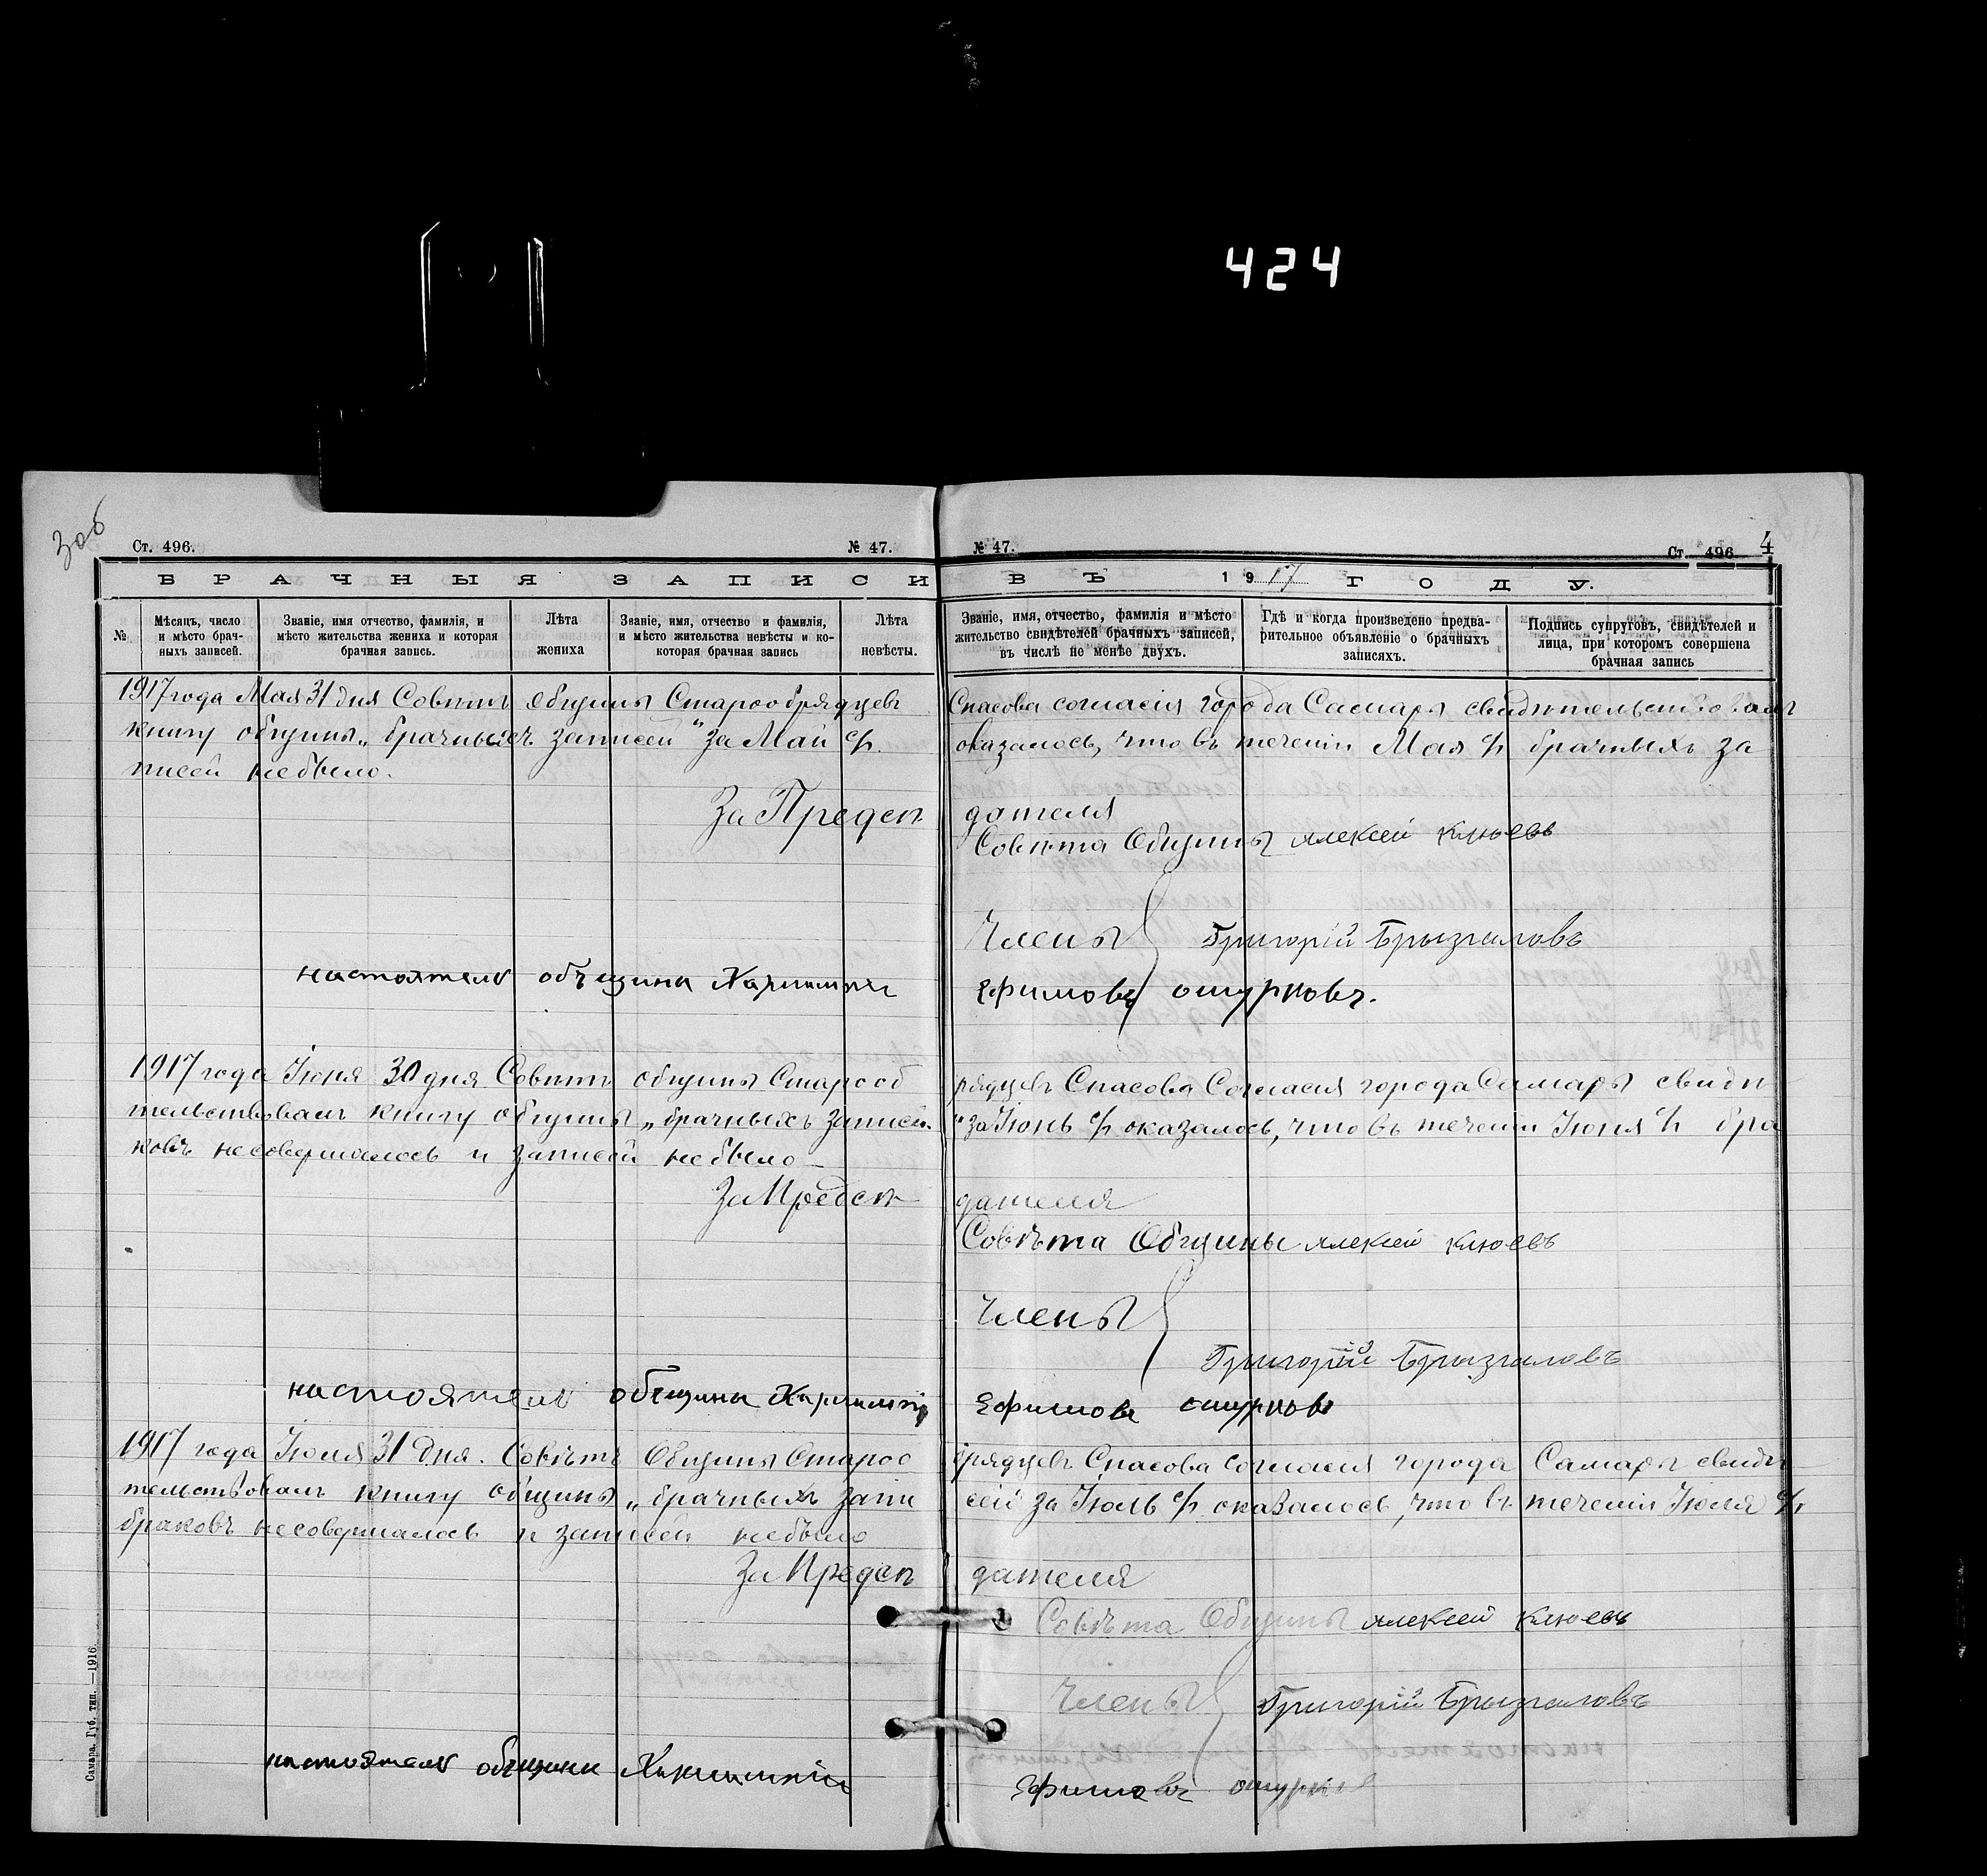 424
3 об
Ст. 496. № 47.
№ 47. Ст. 496 4
БРАЧНЫЯ ЗАПИСИ ВЪ 1917 ГОДУ.
№
Мѣсяцъ, число и мѣсто брачныхъ записей.
Званіе, имя отчество, фамилія, и мѣсто жительства жениха и которая брачная запись.
Лѣта жениха
Званіе, имя, отчество и фамилія, и мѣсто жительства невѣсты и которая брачная запись
Лѣта невѣсты.
Званіе, имя, отчество, фамилія и мѣсто жительство свидѣтелей брачныхъ записей, въ числѣ не менѣе двухъ.
Гдѣ и когда произведено предварительное объявленіе о брачныхъ записяхъ.
Подпись супруговъ, свидѣтелей и лица, при которомъ совершена брачная запись
1917 года Мая 31 дня Совѣтъ Общины Старообрядцевъ Спасова согласія города Самары свидѣтельствовалъ
книгу общины „брачныхъ записей“ за Май с/г. оказалось, что въ теченіи Мая с/г брачныхъ за
писей небыло.
За Предсѣдателя
Совѣта Общины Алексей Клюевъ
Члены Григорій Брызгаловъ
настоятель общины Харлампій Ефимовъ ошурковъ.
1917 года Іюня 30 дня Совѣтъ общины Старообрядцевъ Спасова Согласія города Самары свидѣ
тельствовалъ книгу общины „брачныхъ записей“ за Іюнь с/г оказалось, что въ теченіи Іюня с/г бра
ковъ несовершалось и записей небыло
За Предсѣдателя
Совѣта Общины Алексей Клюевъ
Члены
Григорій Брызгаловъ
настоятель общины Харлампій Ефимовъ ошурковъ
1917 года Іюля 31 дня. Совѣтъ Общины Старообрядцевъ Спасова Согласія города Самары свидѣ
тельствовалъ книгу общины „брачныхъ записей за Іюль с/г оказалось, что въ теченіи Іюля с/г
браковъ несовершалось и записей небыло
За Предсѣдателя
Совѣта Общины Алексей Клюевъ
Члены Григорій Брызгаловъ
настоятель общины Харлампій Ефимовъ ошурковъ
Самара, Губ. тип. —1916.